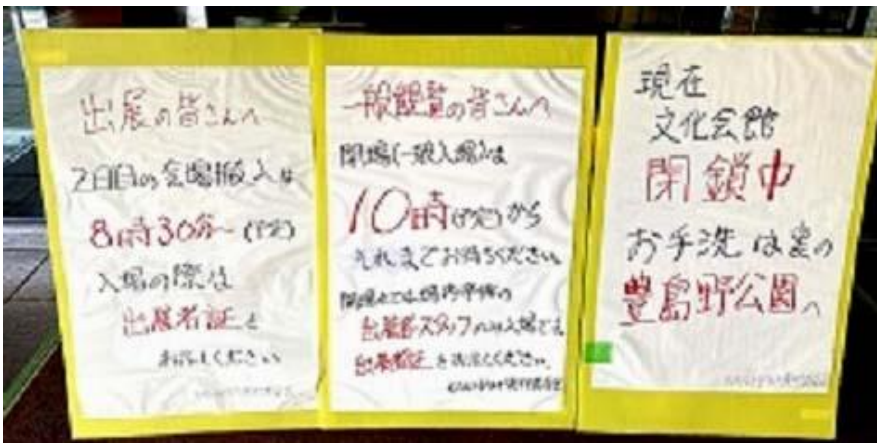 出展の皆さんへ
2日目の会場搬入は
8時30分〜(予定)
入場の際は
出展者証を
お示しください
一般観覧の皆さんへ
開場(一般入場)は
10時(予定)から
それまでお待ちください
開場までは場内準備の
出展者・スタッフのみ入場です
出展者証をお示しください。
現在
文化会館
閉鎖中
お手洗は裏の
豊島野公園へ